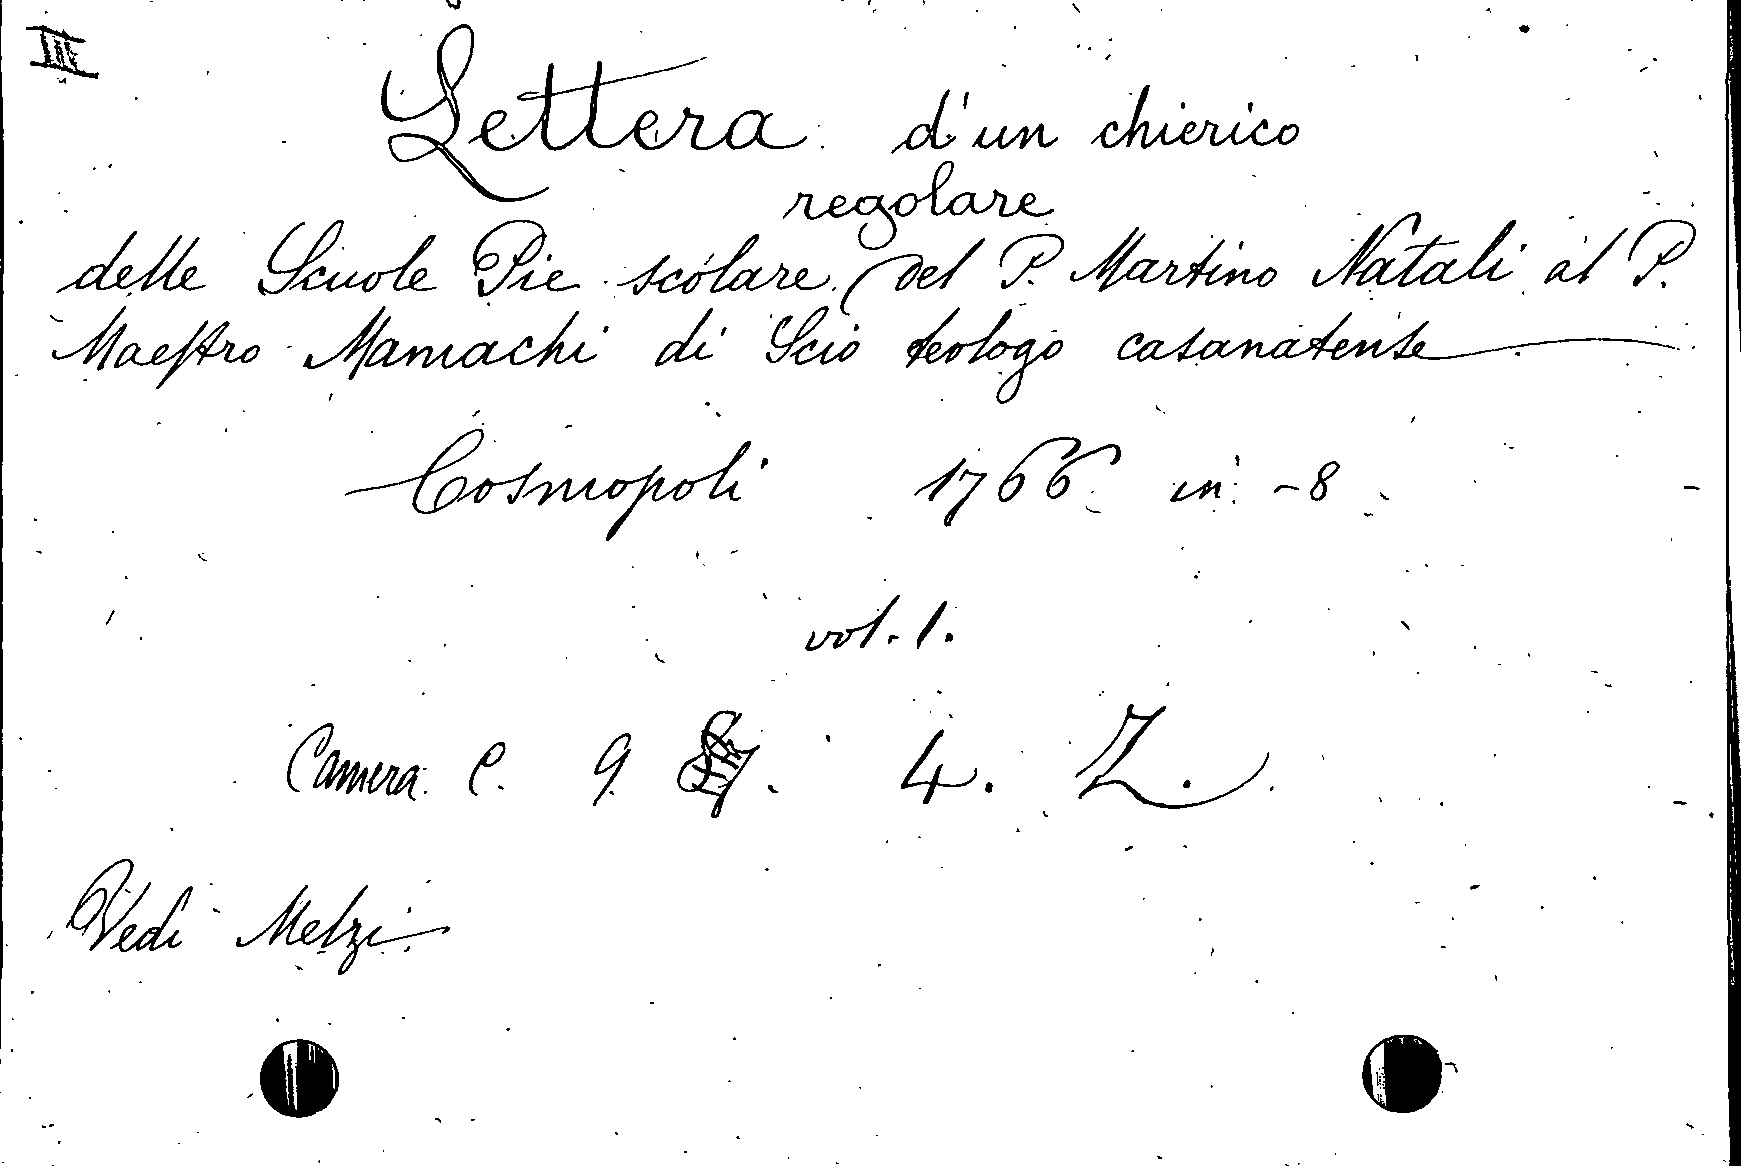 III
Lettera d'un chierico
regolare
delle Scuole Pie scolare (del P. Martino Natali al P.
Maestro Mamachi di Scio teologo casanatense
Cosmopoli 1766 in -8
vol. 1.
Camera C. 9. 4. Z.
Vedi Melzi.